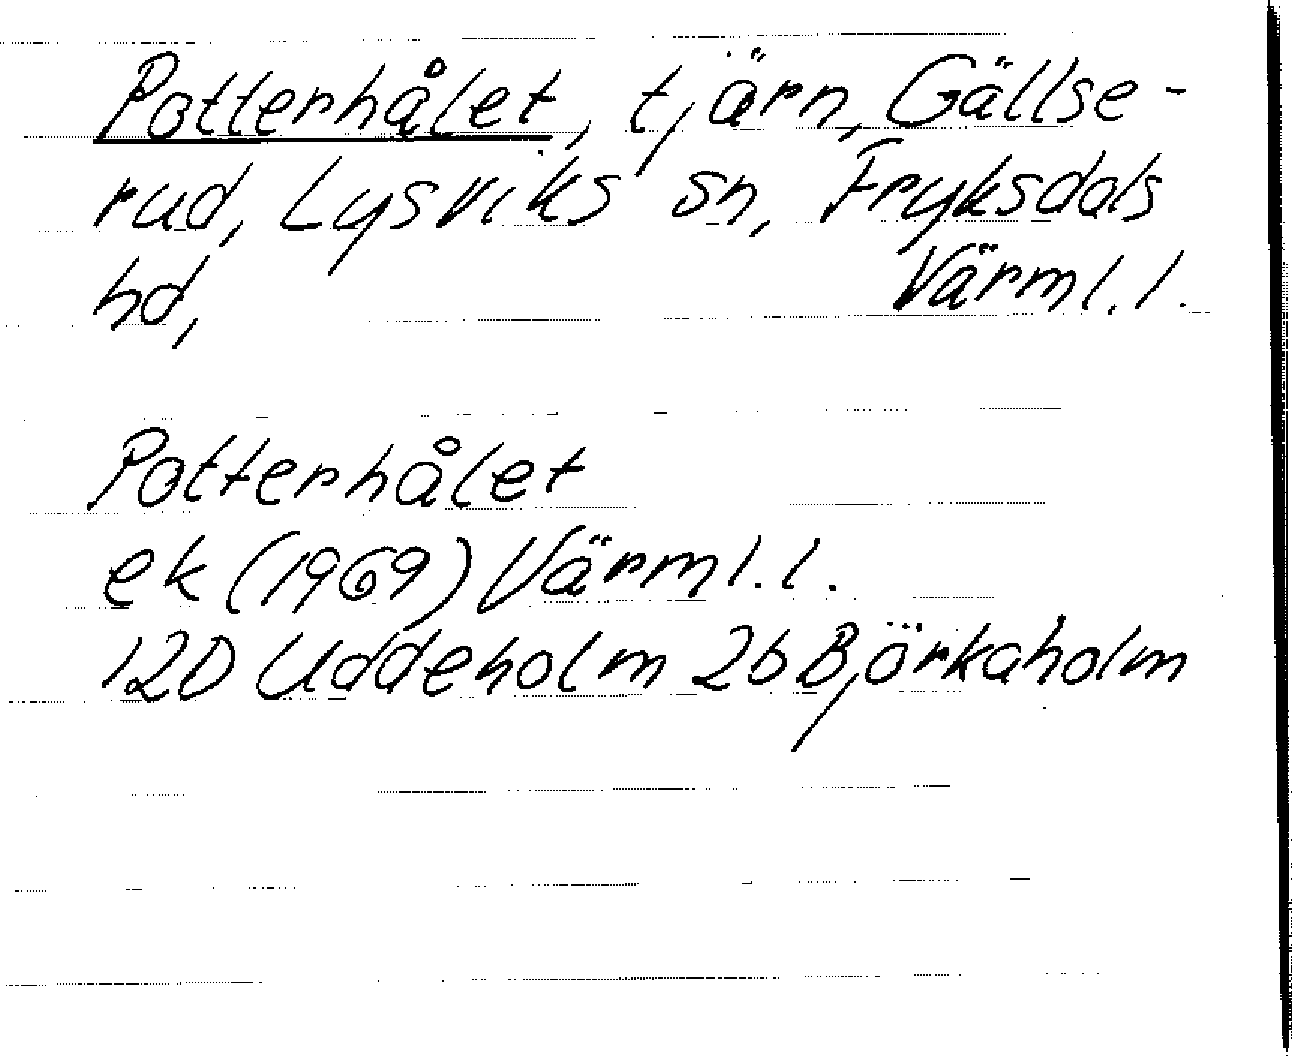 Potterhålet, tjärn, Gällse-
rud, Lysviks sn, Fryksdals
hd, Värml. l.
Potterhålet
ek (1969) Värml. l.
12D Uddeholm 2b Björkaholm